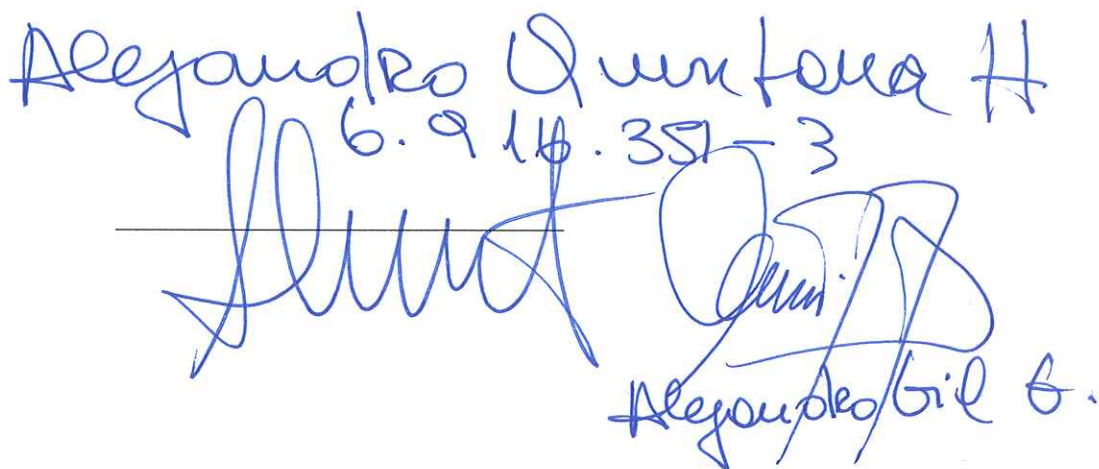 Alejandro Quintana H
6.916.351-3
Alejandro Gil G.